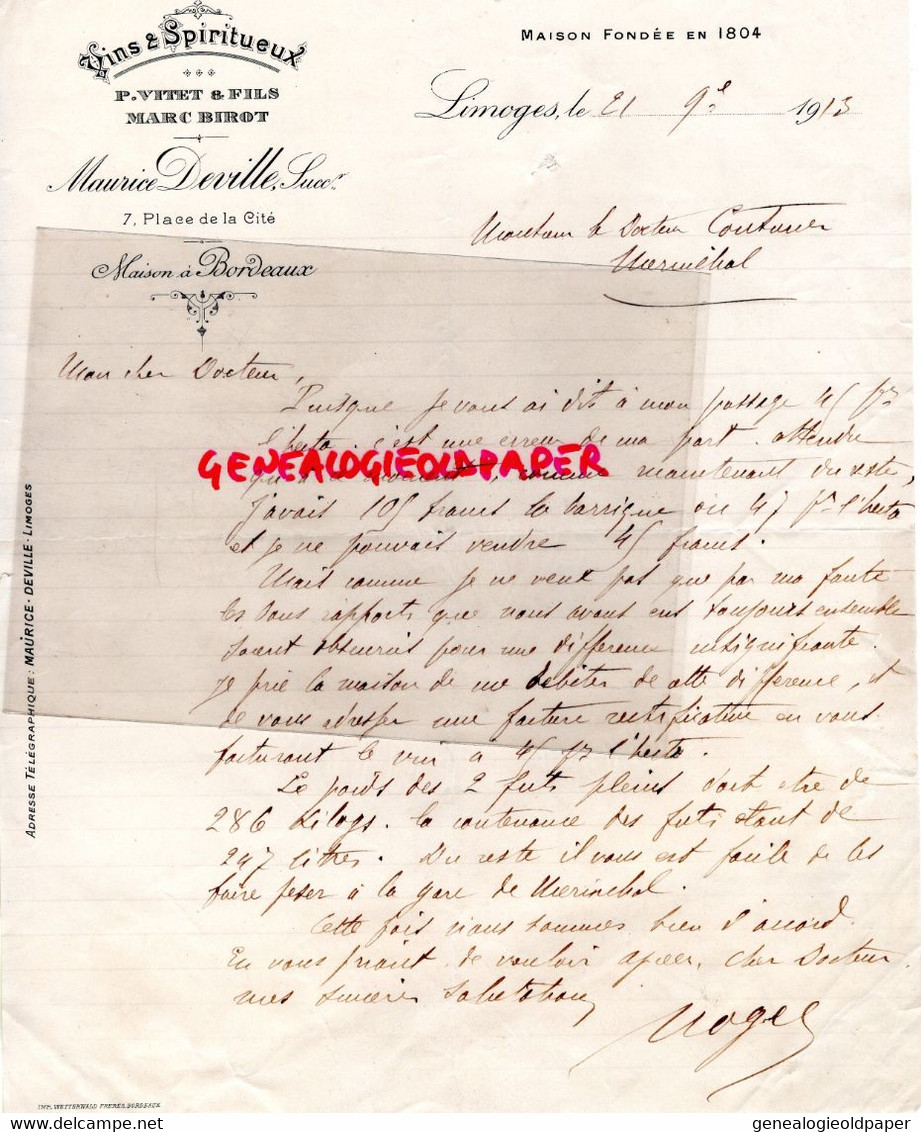 Vins & Spiritueux
P. VITET & FILS
MARC BIROT
Maurice Deville, Succr.
7, Place de la Cité
Maison à Bordeaux
MAISON FONDÉE EN 1804
Limoges, le 21 9e 1913
Monsieur le Docteur
Mérinchal
Mon cher Docteur,
Puisque je vous ai dit à mon passage 45 frs
l'hecto. c'est une erreur de ma part. attendu
GENEALOGIEOLDPAPER
moment, comme maintenant du reste,
j'avais 105 francs la barrique ou 47 frs l'hecto
et je ne pouvais vendre 45 francs.
Mais comme je ne veux pas que par ma faute
les bons rapports que nous avons eus toujours ensemble
soient obscurcis pour une différence insignifiante.
Je prie la maison de me débiter de cette différence, et
de vous adresser une facture rectificative en vous
facturant le vin à 45 frs l'hecto.
Le poids des 2 futs pleins doit être de
286 kilogs. la contenance des futs étant de
247 litres. Du reste il vous est facile de les
faire peser à la gare de Mérinchal.
Cette fois nous sommes bien d'accord.
En vous priant de vouloir agréer, cher Docteur
mes sincères salutations
Noges
ADRESSE TÉLÉGRAPHIQUE : MAURICE - DEVILLE - LIMOGES
IMP. WETTERWALD FRÈRES. BORDEAUX
genealogieoldpaper